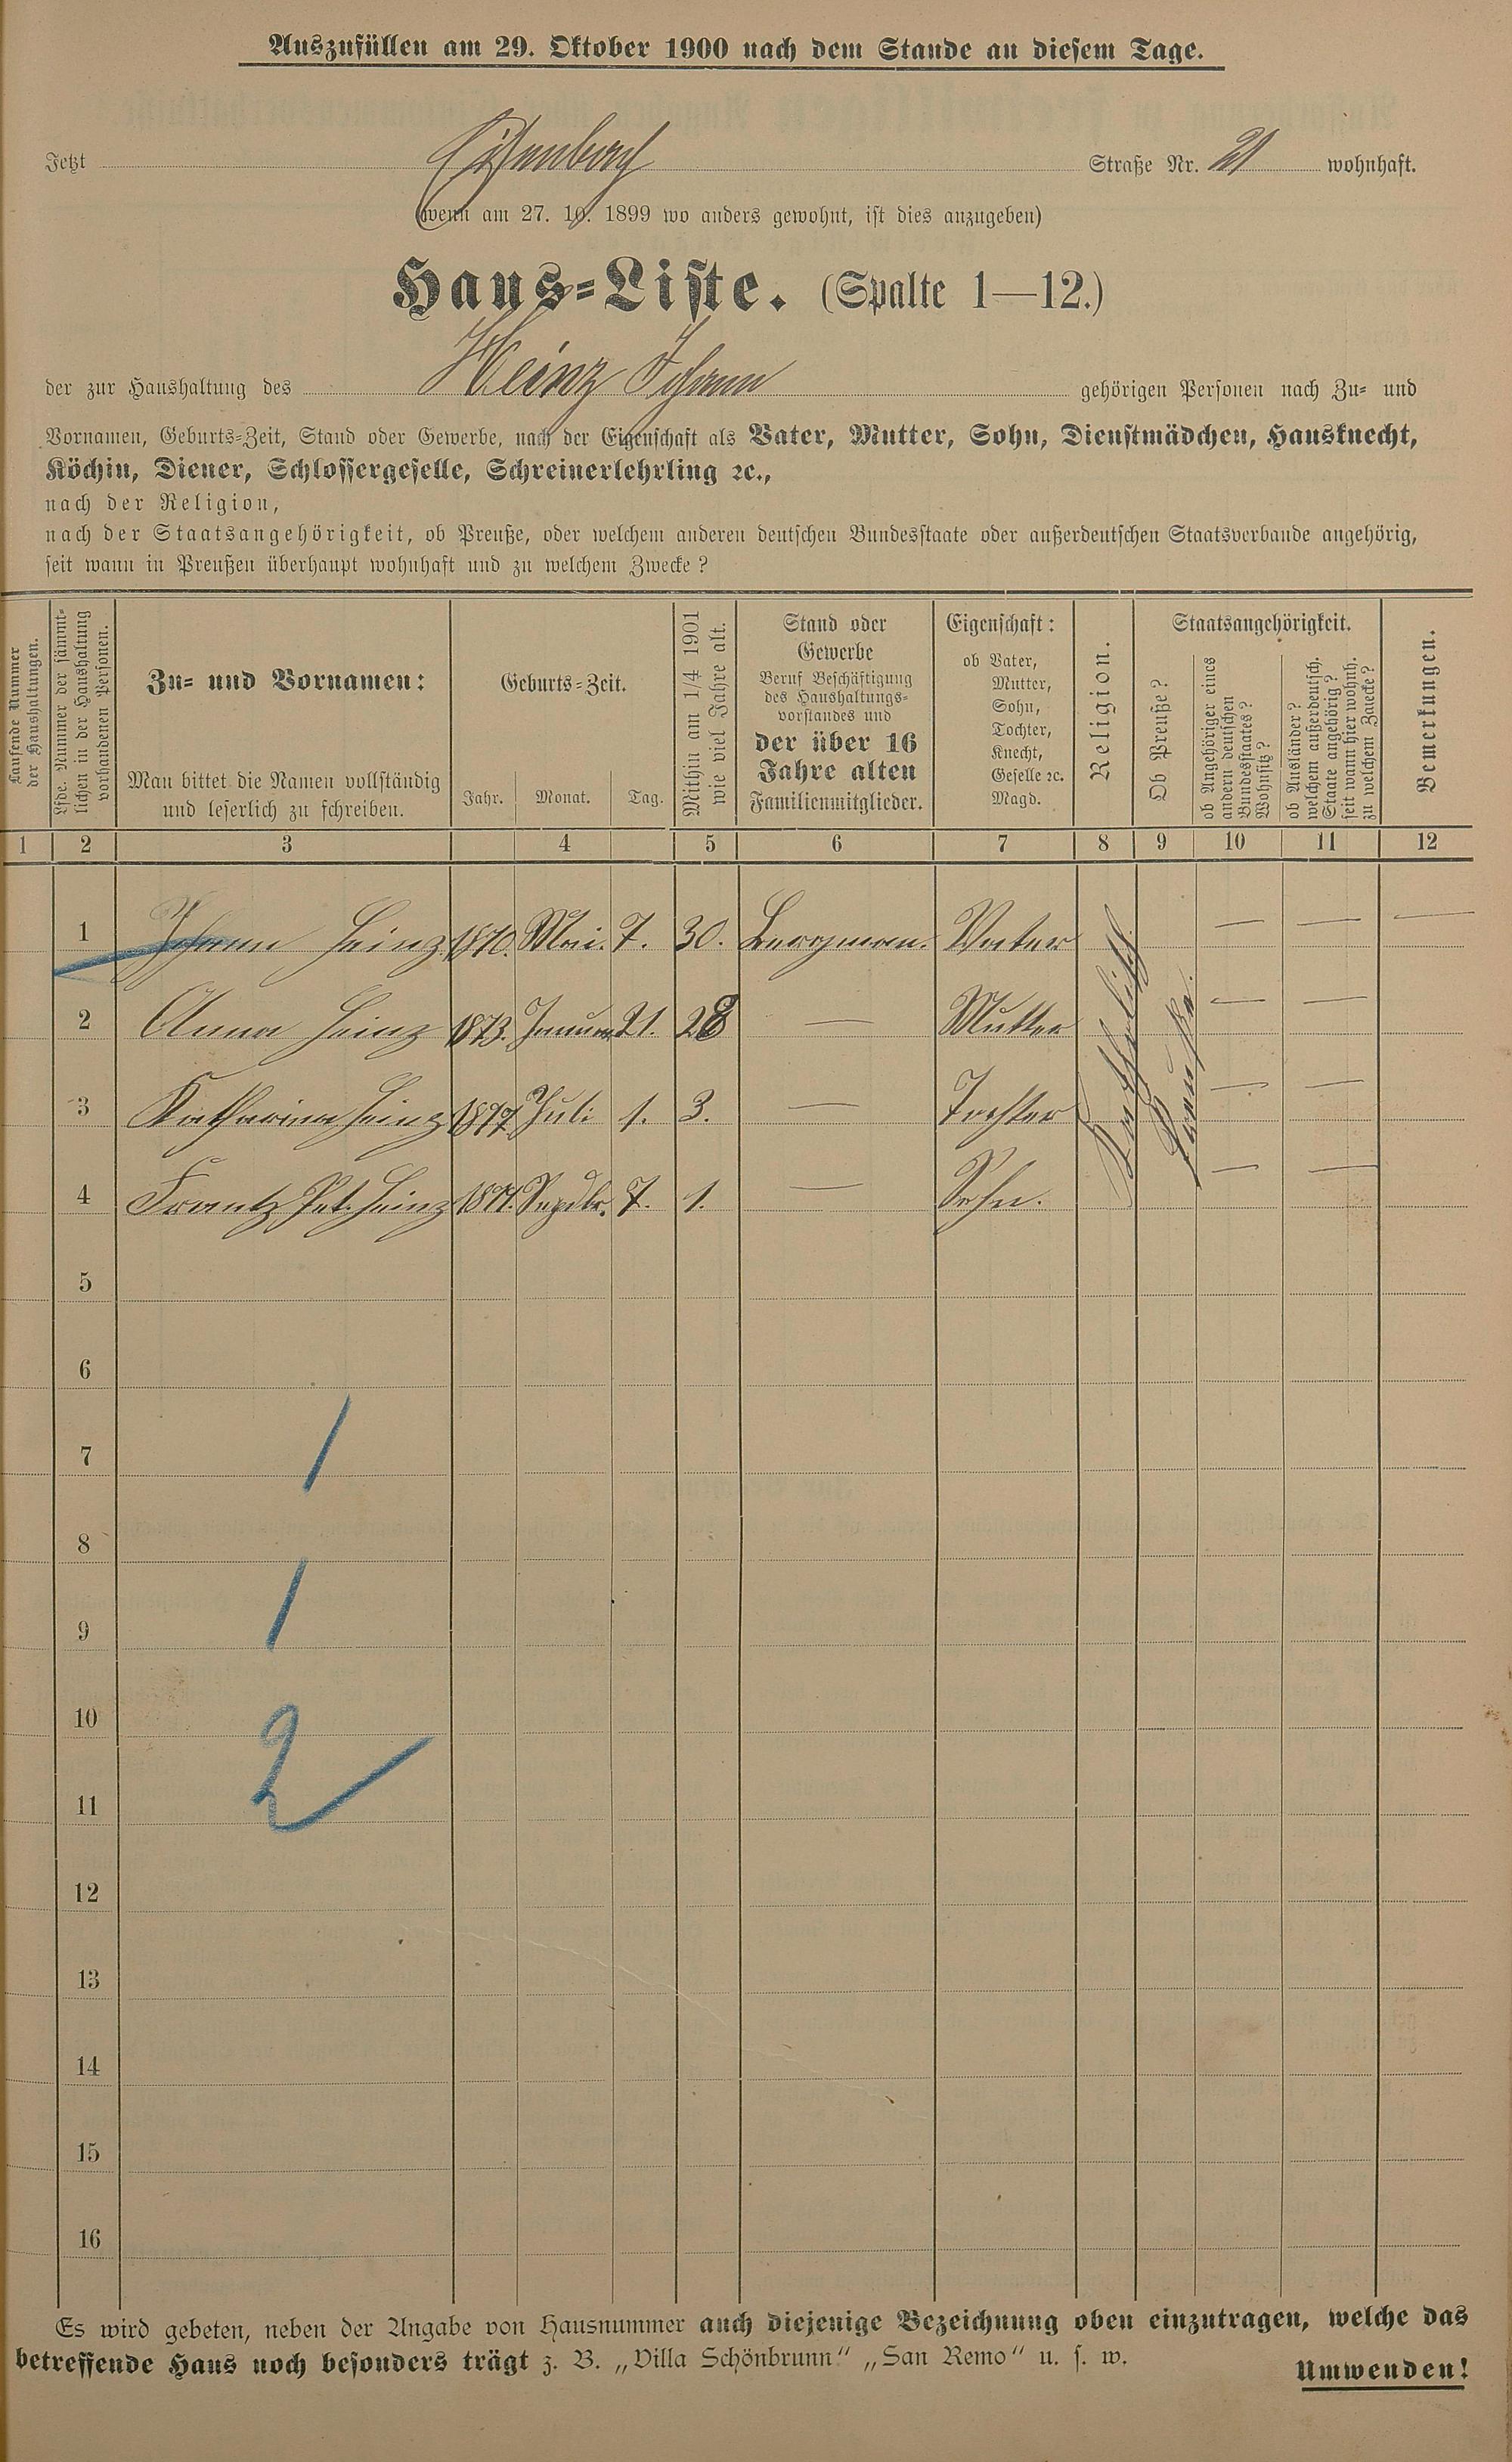 Auszufüllen am 29. Oktober 1900 nach dem Stande an diesem Tage.
Jetzt Straße Nr. 21 wohnhaft.
(wenn am 27. 10. 1899 wo anders gewohnt, ist dies anzugeben)
Haus-Liste. (Spalte 1—12.)
der zur Haushaltung des Heinz Johann gehörigen Personen nach Zu- und
Vornamen, Geburts-Zeit, Stand oder Gewerbe, nach der Eigenschaft als Vater, Mutter, Sohn, Dienstmädchen, Hausknecht,
Köchin, Diener, Schlossergeselle, Schreinerlehrling ꝛc.,
nach der Religion,
nach der Staatsangehörigkeit, ob Preuße, oder welchem anderen deutschen Bundesstaate oder außerdeutschen Staatsverbande angehörig,
seit wann in Preußen überhaupt wohnhaft und zu welchem Zwecke?
Laufende Nummer
der Haushaltungen.
Lfde. Nummer der sämmt-
lichen in der Haushaltung
vorhandenen Personen.
Zu- und Vornamen:
Man bittet die Namen vollständig
und leserlich zu schreiben.
Geburts-Zeit.
Jahr. Monat. Tag.
Mithin am 1/4 1901
wie viel Jahre alt.
Stand oder
Gewerbe
Beruf Beschäftigung
des Haushaltungs-
vorstandes und
der über 16
Jahre alten
Familienmitglieder.
Eigenschaft:
ob Vater,
Mutter,
Sohn,
Tochter,
Knecht,
Geselle ꝛc.
Magd.
Religion.
Staatsangehörigkeit.
Ob Preuße?
ob Angehöriger eines
andern deutschen
Bundesstaates?
Wohnsitz?
ob Ausländer?
welchem außerdeutsch.
Staate angehörig?
seit wann hier wohnh.
zu welchem Zwecke?
Bemerkungen.
1 2 3 4 5 6 7 8 9 10 11 12
1 Johann Heinz 1870. Mai. 7. 30. Bergmann. Vater — — —
2 Anna Heinz 1873. Januar 21. 28 — Mutter — —
3 Katharina Heinz 1897 Juli 1. 3. — Tochter — —
4 Frantz Pet. Heinz 7. 1. — Sohn. — —
Katholisch
5
6
7
8
9
10
11
12
13
14
15
16
1
1
2
Es wird gebeten, neben der Angabe von Hausnummer auch diejenige Bezeichnung oben einzutragen, welche das
betreffende Haus noch besonders trägt z. B. „Villa Schönbrunn“ „San Remo“ u. s. w.
Umwenden!